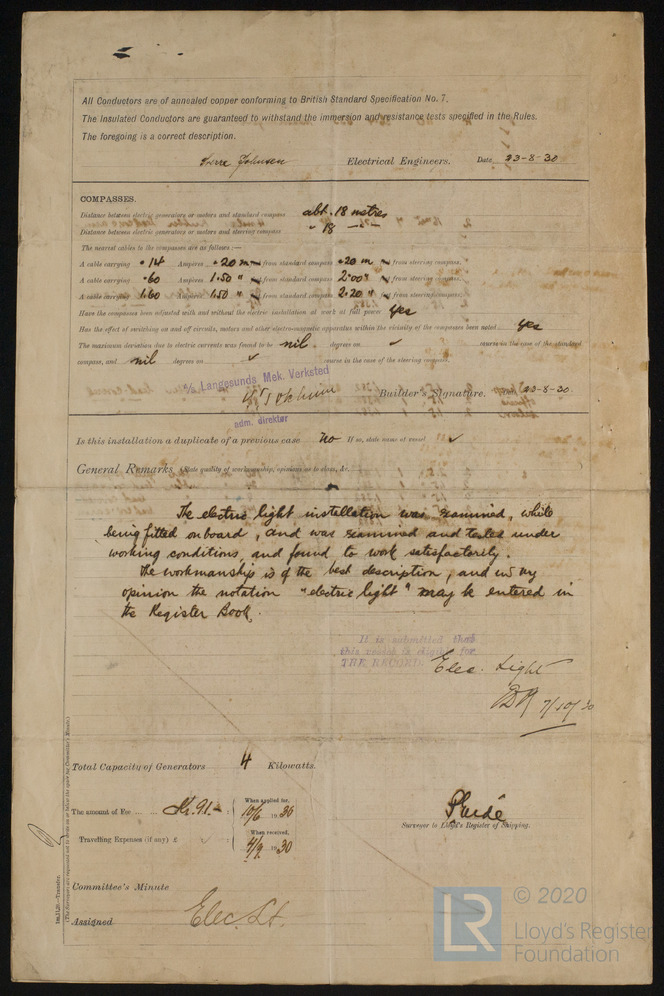 All Conductors are of annealed copper conforming to British Standard Specification No. 7.
The Insulated Conductors are guaranteed to withstand the immersion and resistance tests specified in the Rules.
The foregoing is a correct description.
Johnsen Electrical Engineers. Date 23-8-30
COMPASSES.
Distance between electric generators or motors and standard compass abt. 18 metres
Distance between electric generators or motors and steering compass " 18 —
The nearest cables to the compasses are as follows:—
A cable carrying .14 Amperes .20 m from standard compass .20 m from steering compass.
A cable carrying .60 Amperes 1.50 " from standard compass 2.00 " from steering compass.
A cable carrying 1.60 Amperes 1.50 " from standard compass 2.20 " from steering compass.
Have the compasses been adjusted with and without the electric installation at work at full power Yes
Has the effect of switching on and off circuits, motors and other electro-magnetic apparatus within the vicinity of the compasses been noted Yes
The maximum deviation due to electric currents was found to be nil. degrees on ✓ course in the case of the standard
compass, and nil degrees on ✓ course in the case of the steering compass.
A/S Langesunds Mek. Verksted
Builder's Signature. 23-8-30.
adm. direktør
Is this installation a duplicate of a previous case No If so, state name of vessel ✓
General Remarks (State quality of workmanship, opinions as to class, &c.
The electric light installation was examined, while
being fitted onboard, and was examined and tested under
working conditions, and found to work satisfactorily.
The workmanship is of the best description, and in my
opinion the notation "electric light" may be entered in
the Register Book.
It is submitted that
this vessel is eligible for
THE RECORD. Elec. Light
7/10/30
Total Capacity of Generators 4 Kilowatts.
The amount of Fee ... ... Kr. 91.– : When applied for, 10/6 1930
Travelling Expenses (if any) £ ✓ : When received, 4/9 1930
Surveyor to Lloyd's Register of Shipping.
Committee's Minute
Assigned Elec. Lt.
Transfer.
(The Surveyors are requested not to write on or below the space for Committee's Minute.)
LR
© 2020
Lloyd's Register
Foundation